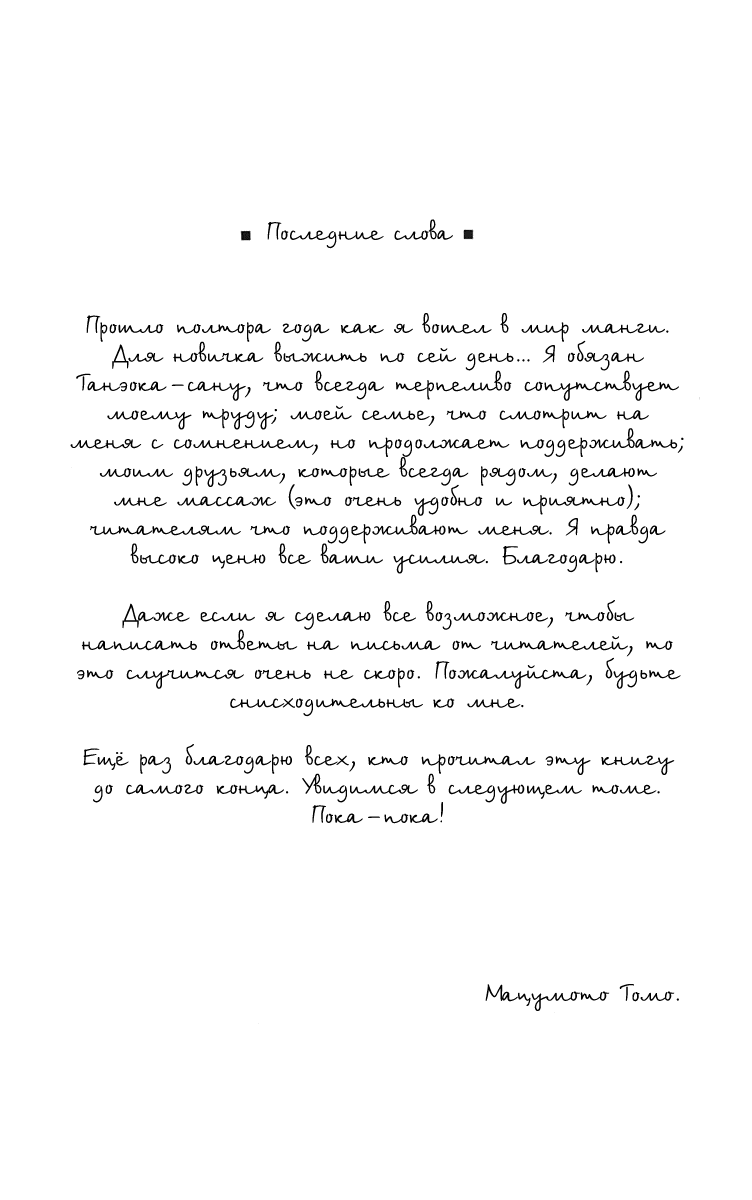 ▪ Последние слова ▪
Прошло полтора года как я вошел в мир манги.
Для новичка выжить по сей день... Я обязан
Танэока-сану, что всегда терпеливо сопутствует
моему труду; моей семье, что смотрит на
меня с сомнением, но продолжает поддерживать;
моим друзьям, которые всегда рядом, делают
мне массаж (это очень удобно и приятно);
читателям что поддерживают меня. Я правда
высоко ценю все ваши усилия. Благодарю.
Даже если я сделаю все возможное, чтобы
написать ответы на письма от читателей, то
это случится очень не скоро. Пожалуйста, будьте
снисходительны ко мне.
Ещё раз благодарю всех, кто прочитал эту книгу
до самого конца. Увидимся в следующем томе.
Пока-пока!
Мацумото Томо.